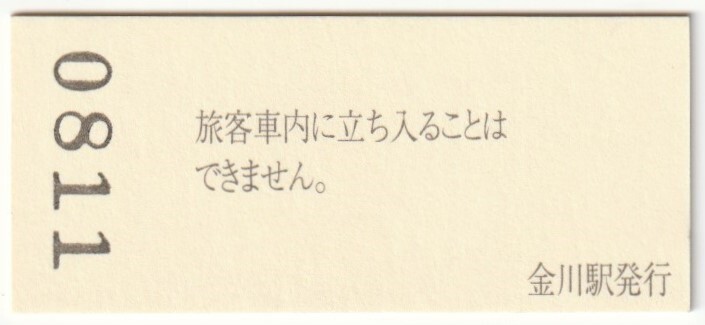 0811
旅客車内に立ち入ることは
できません。
金川駅発行